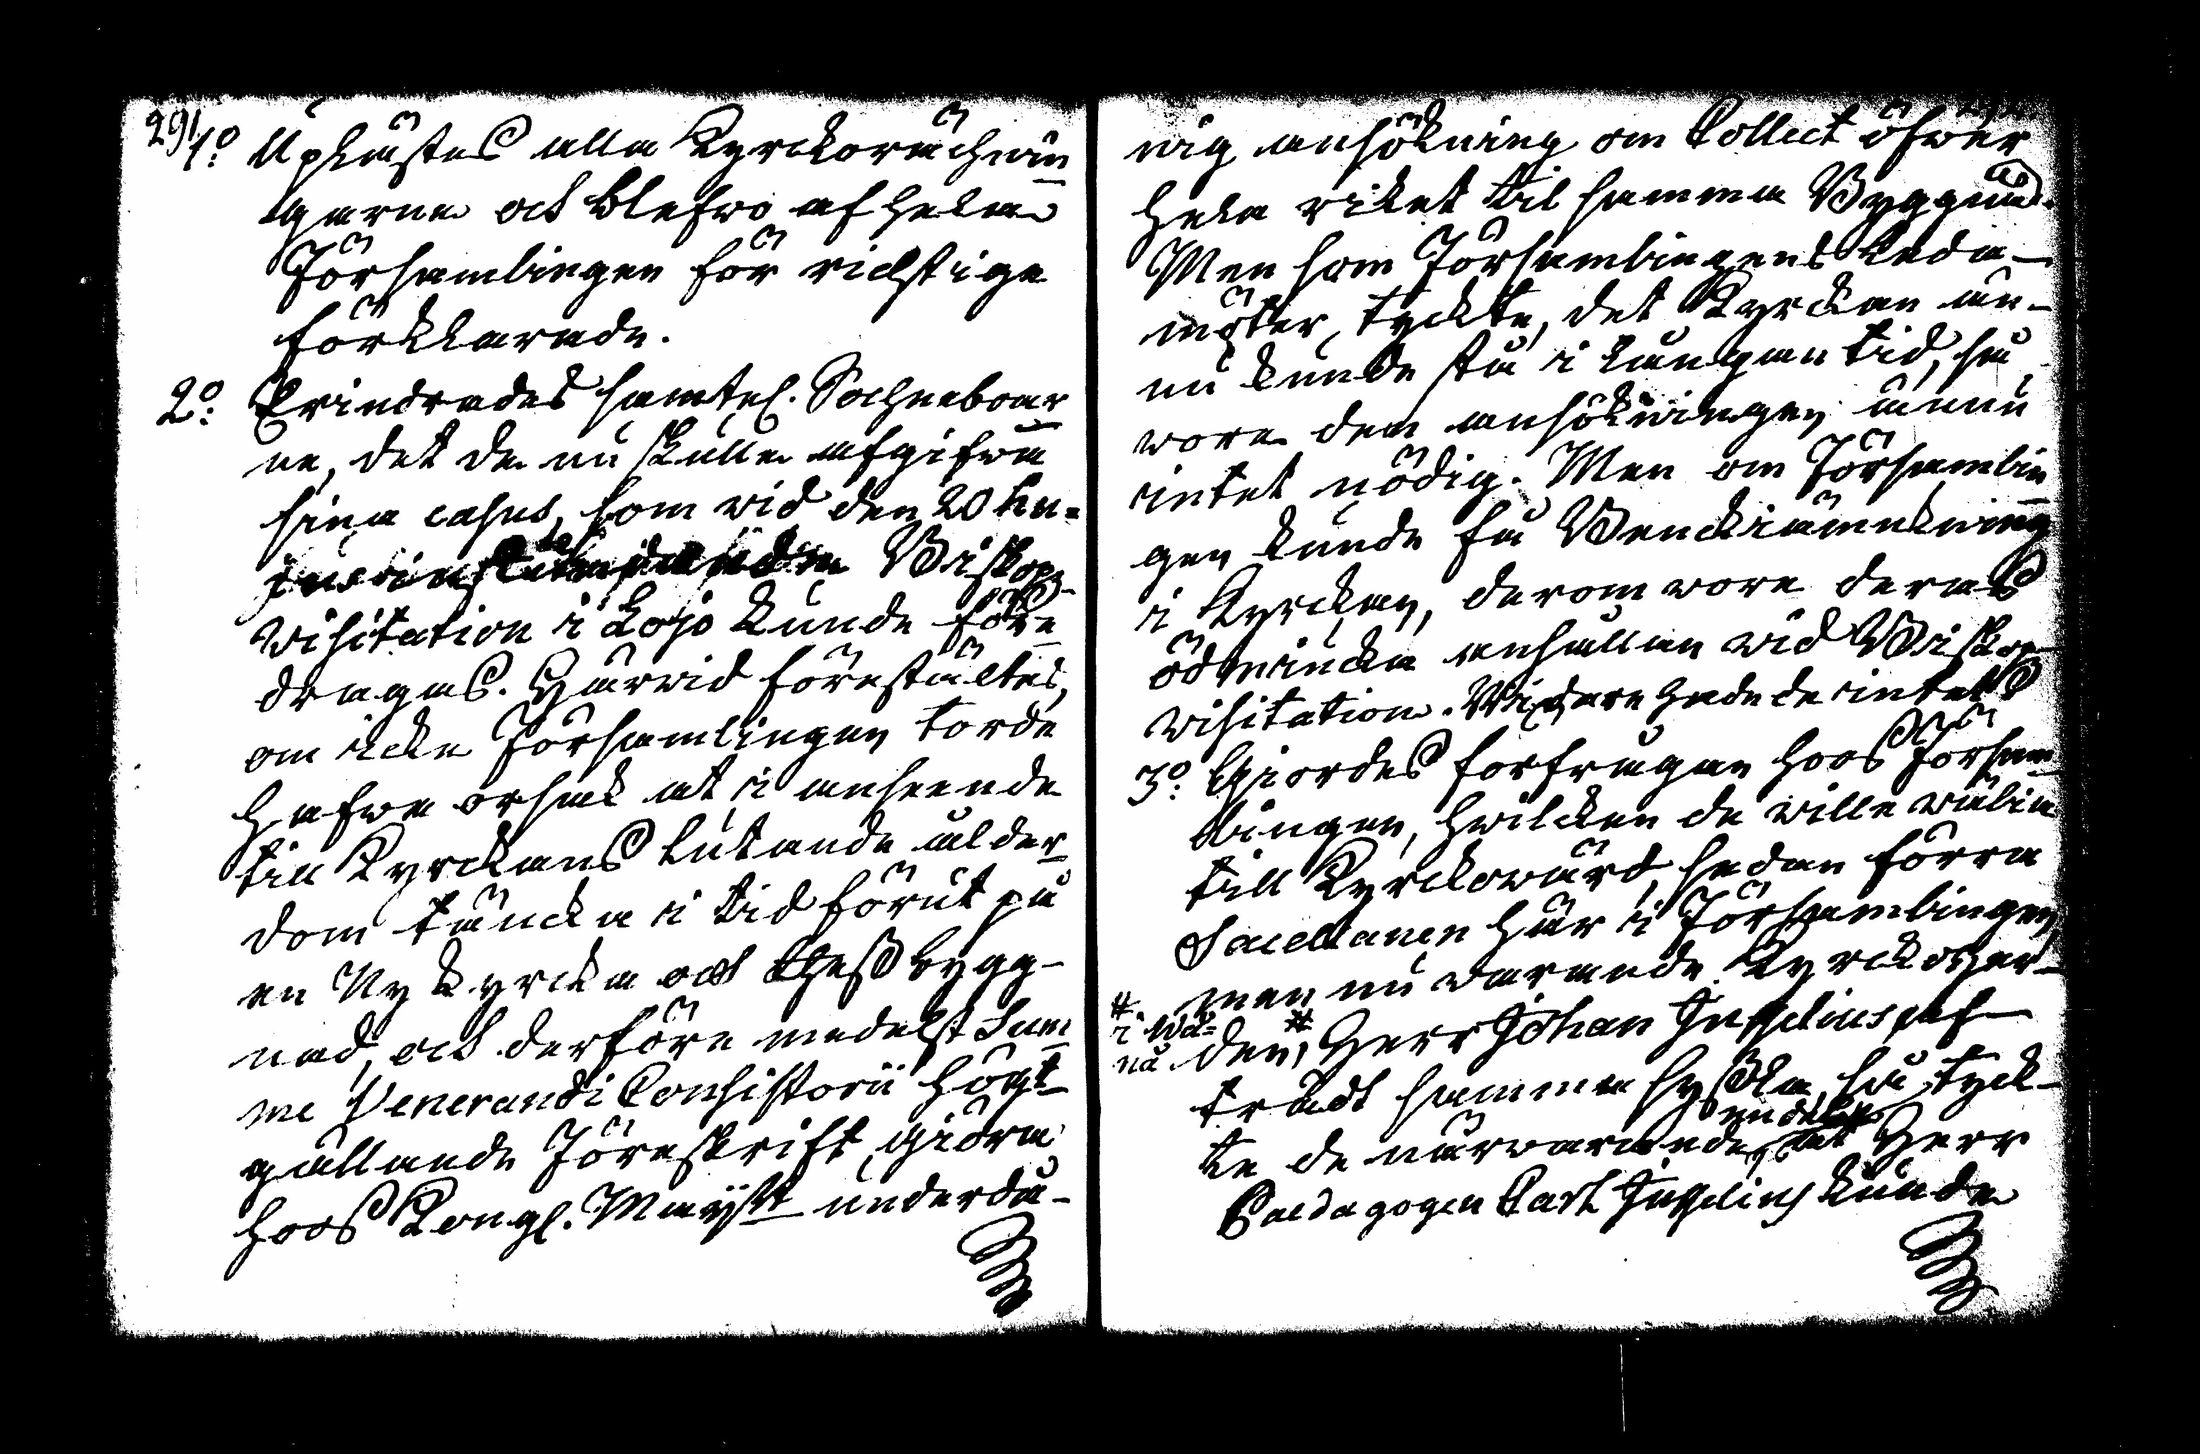 291.
1:o Upläste​s alla Kyrckorächnin
garne och blefwo af hela
Församblingen för richtige
förklarade.
2:o Erindrades samtel. Sochneboar
ne, det de nu skulle afgifwa
sina casus, som wid den 20 hu-
jus Biskops
visitation i Lojo kunde före
dragas. Härwid föreställtes,
om icke Församlingen torde
hafwa orsak at, i anseende
till Kyrckans lutande ålder
dom täncka i tid förut på
en Ny kyrcka och thess bygg-
nad, och derföre medelst Sum
me Venerandi Consistorii högt
gällande Föreskrift, giöra
hoos Kongl. Maij:tt underdå-
nig ansökning om Collect öfwer
hela riket til samma Byggnad.
Men som Församblingens Leda-
möter, tyckte, det Kyrckan än-
nu kunde stå i långan tid, så
wore den ansökningen ännu
intet nödig. Men om Församblin
gen kunde få Wenckiämnkning
i Kyrckan, derom wore deras
ödmiucka anhållan wid Biskops
visitation. Widare hade de intet
3:o Giordes förfrågan hoos Försam
blingen, hwilcken de wille wälia
till Kyrckowärd, sedan förra
Sacellanen här i Församblingen,
men nu warande Kyrckoher-
# i Wå-
nå
den, # Herr Johan Ingelius, af-
trädt samma syssla, så tyck-
te de närwarande, endteligen at Herr
Paedagogen Carl Ingelius kunde